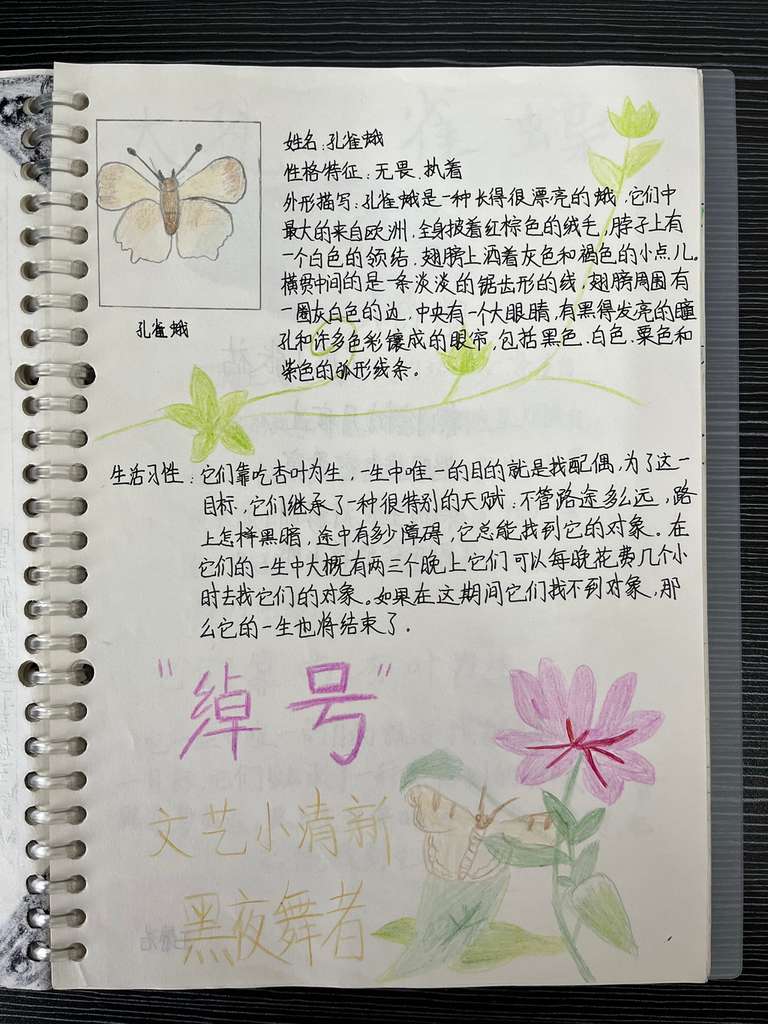 姓名：孔雀蛾
性格特征：无畏、执着
外形描写：孔雀蛾是一种长得很漂亮的蛾，它们中
最大的来自欧洲，全身披着红棕色的绒毛，脖子上有
一个白色的领结，翅膀上洒着灰色和褐色的小点儿。
横贯中间的是一条淡淡的锯齿形的线，翅膀周围有
一圈灰白色的边，中央有一个大眼睛，有黑得发亮的瞳
孔和许多色彩镶成的眼帘，包括黑色、白色、栗色和
紫色的弧形线条。
孔雀蛾
生活习性：它们靠吃杏叶为生，一生中唯一的目的就是找配偶，为了这一
目标，它们继承了一种很特别的天赋：不管路途多么远，路
上怎样黑暗，途中有多少障碍，它总能找到它的对象。在
它们的一生中大概有两三个晚上它们可以每晚花费几个小
时去找它们的对象。如果在这期间它们找不到对象，那
么它的一生也将结束了.
"绰号"
文艺小清新
黑夜舞者